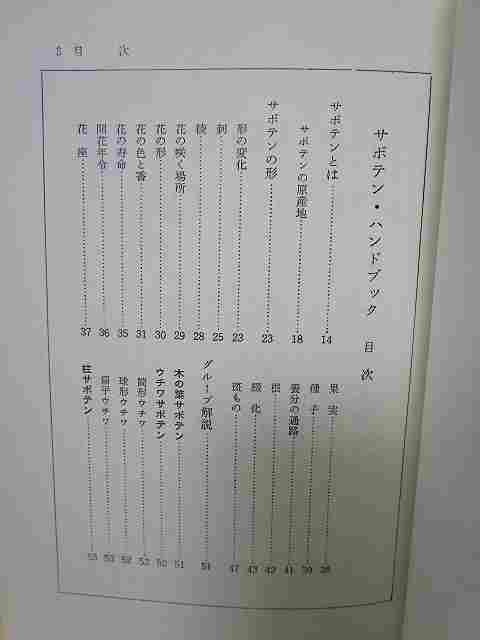 目次
サボテン・ハンドブック 目次
サボテンとは……14
サボテンの原産地……18
サボテンの形……23
形の変化……23
刺……25
稜……28
花の咲く場所……29
花の形……30
花の色と香……31
花の寿命……35
開花年令……36
花座……37
果実……38
種子……39
養分の通路……41
根……42
綴化……43
斑もの……47
グループ解説……51
木の葉サボテン……51
ウチワサボテン……52
筒形ウチワ……52
球形ウチワ……52
扁平ウチワ……53
柱サボテン……55